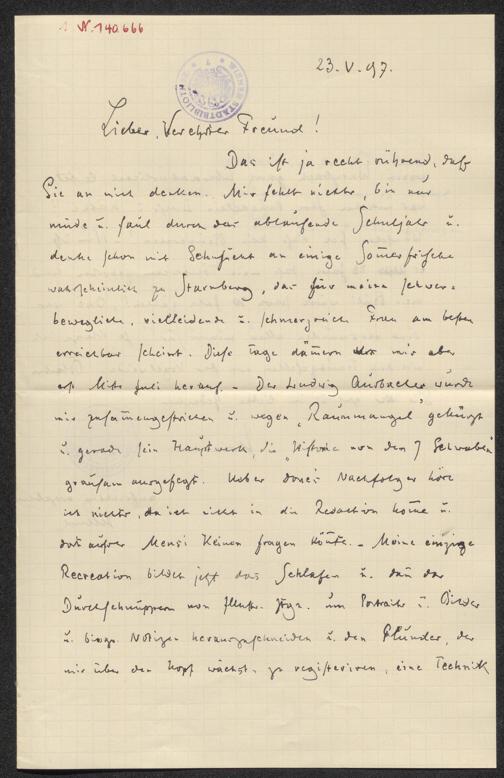 N. 140.666
STADTBIBLIOTHEK
23. V. 97.
Lieber, Verehrter Freund!
Das ist ja recht rührend, daß
Sie an mich denken. Mir fehlt nichts, bin nur
müde u. faul durch das ablaufende Schuljahr u.
denke schon mit Sehnsucht an einige Somerfrische
wahrscheinlich zu Starnberg, das für meine schwer-
bewegliche, vielleidende u. schmerzreiche Frau am besten
erreichbar scheint. Diese Tage dämern mir aber
erst Mitte Juli herauf. - Der Ludwig Aurbacher wurde
mir zusamengestrichen u. wegen „Raummangel" gekürzt
u. gerade sein Hauptwerk, die „Historie von den 7 Schwaben"
grausam ausgefegt. Ueber Nachfolger höre
ich nichts, da ich nicht in die Redaction kome u.
dort außer Mensi Keinen fragen könte. - Meine einzige
Recreation bildet jetzt das Schlafen u. dan das
Durchschnuppern von Illustr. Ztgn. um Portraits u. Bilder
u. biogr. Notizen herauszuschneiden u. den Plunder, der
mir über den Kopf wächst, zu registeriren, eine Technik